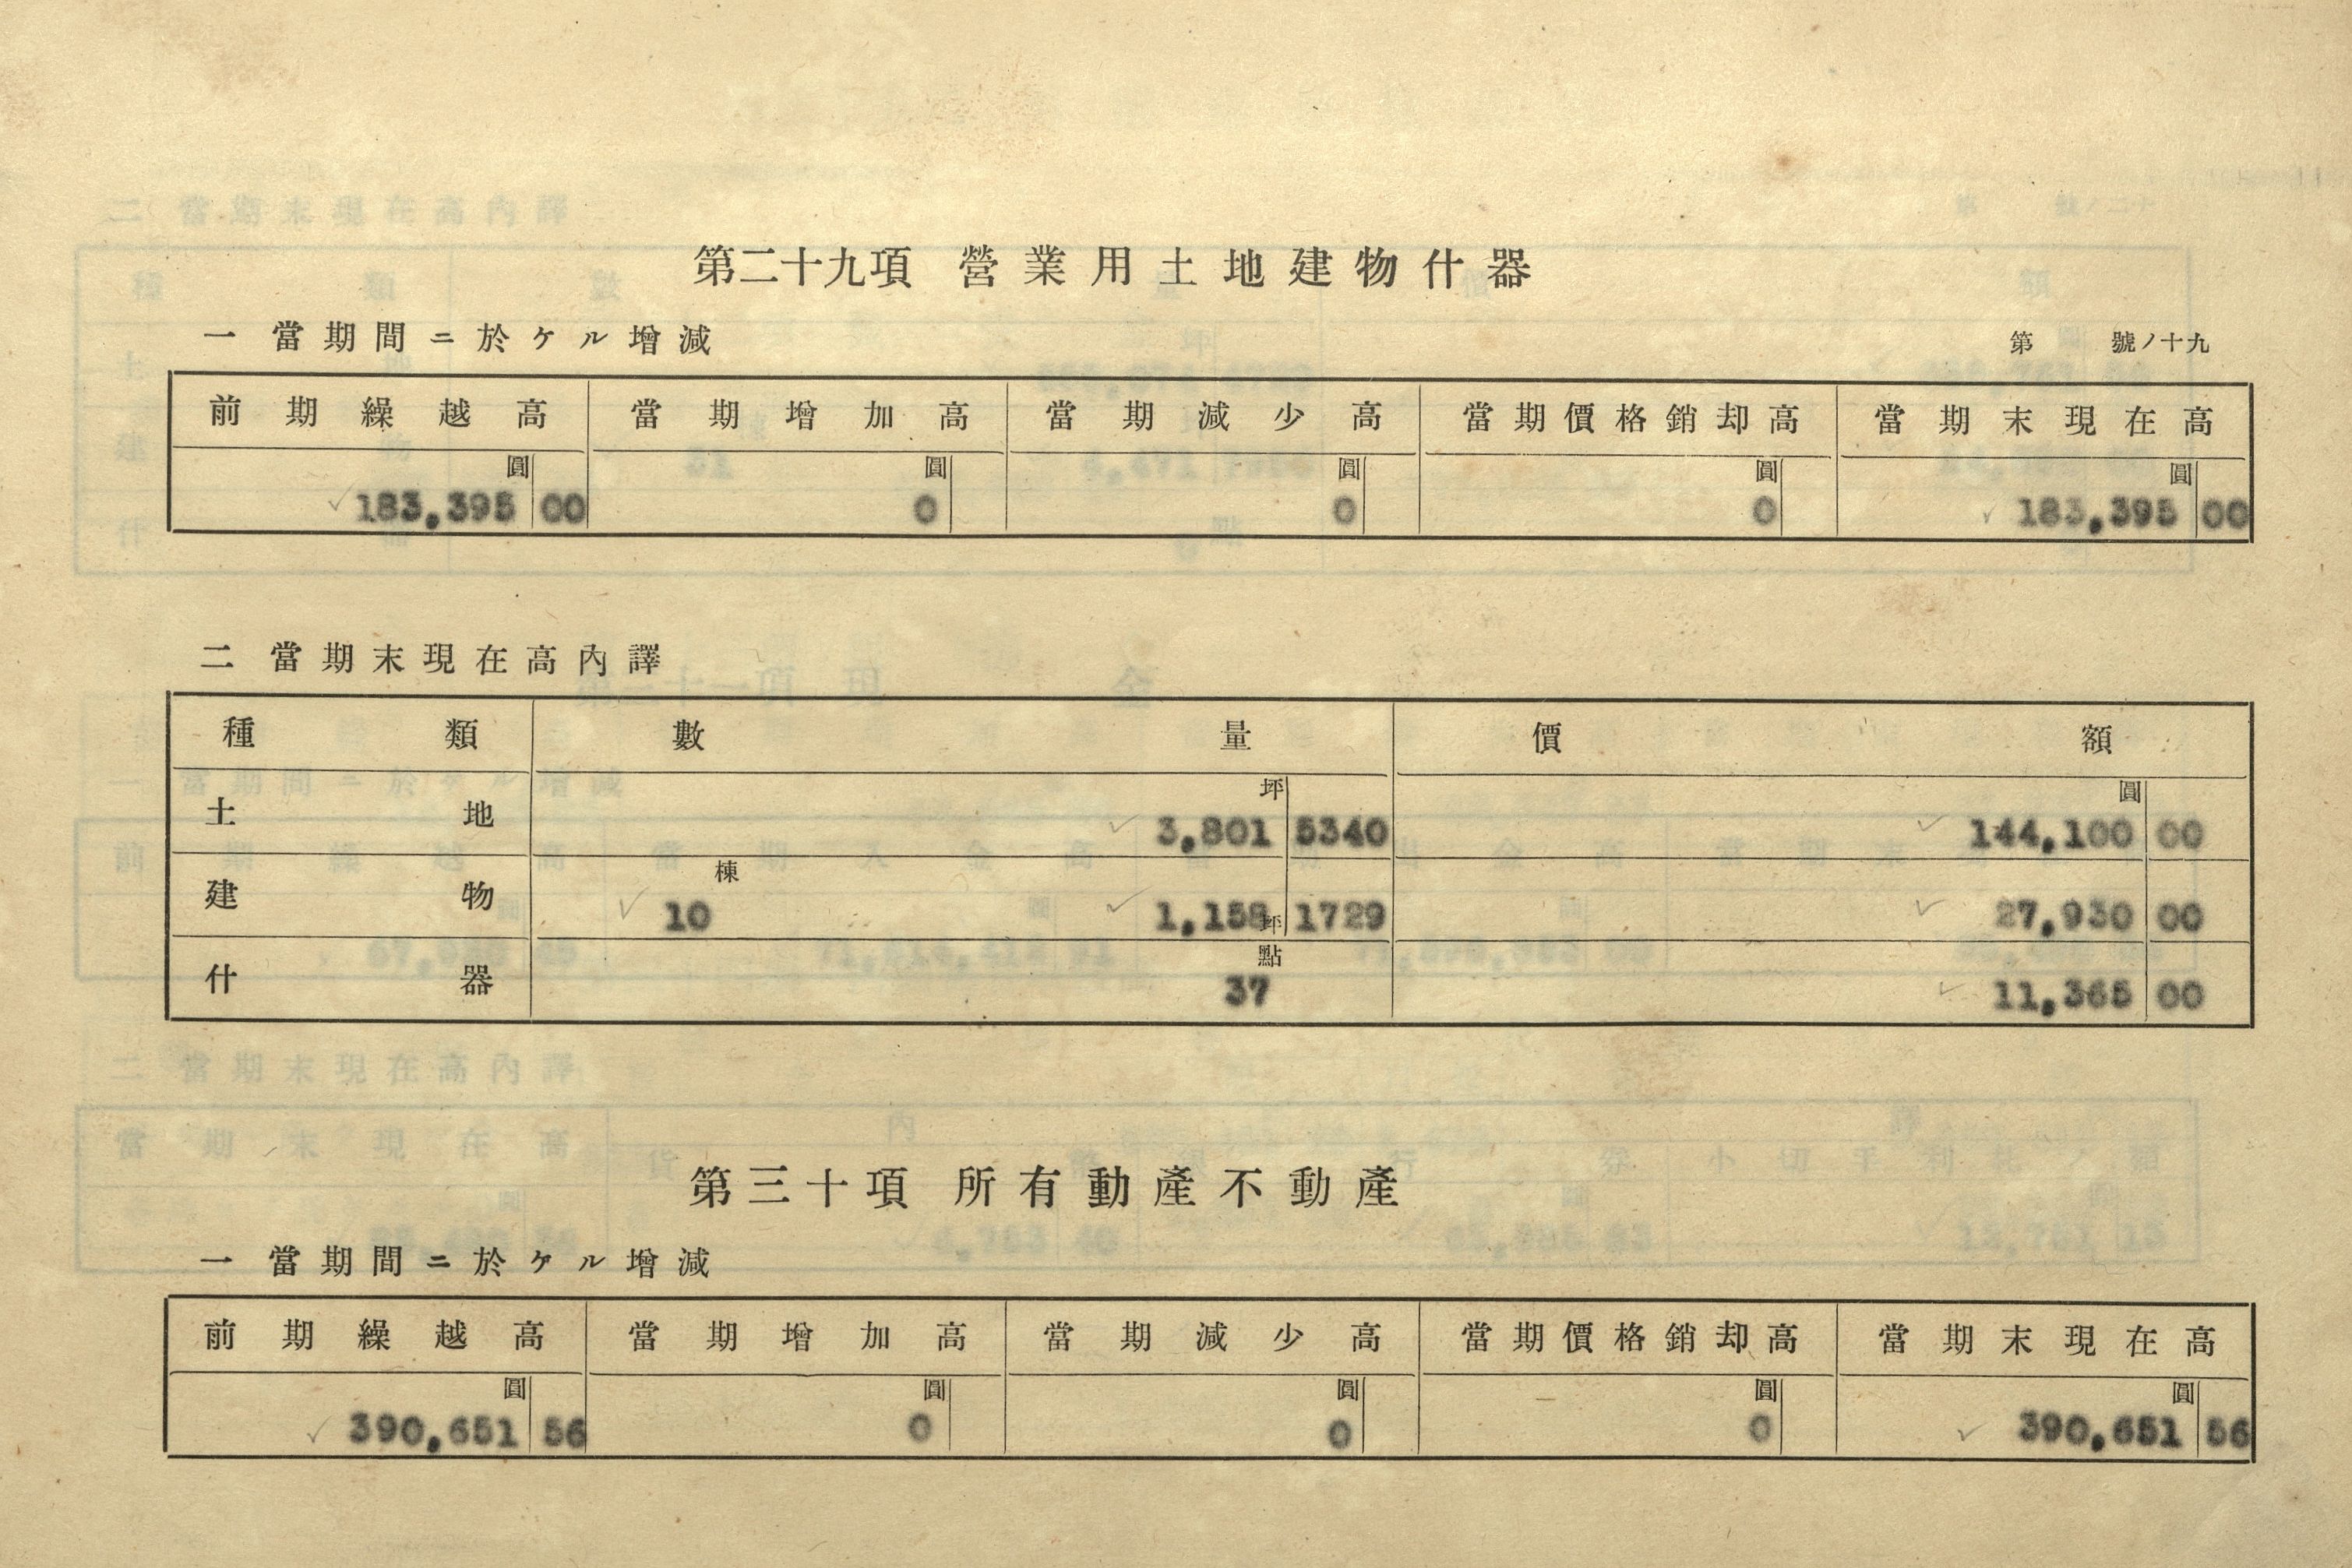 第二十九項 營業用土地建物什器
一 當期間ニ於ケル增減
第 號ノ十九
前期繰越高 當期增加高 當期減少高 當期價格銷却高 當期末現在高
圓 圓 圓 圓 圓
183,395 00 0 0 0 183,395 00
二 當期末現在高內譯
種類 數量 價額
坪 圓
土地 3,801 5340 144,100 00
棟
建物 10 1,158坪 1729 27,930 00
點
什器 37 11,365 00
第三十項 所有動產不動產
一 當期間ニ於ケル增減
前期繰越高 當期增加高 當期減少高 當期價格銷却高 當期末現在高
圓 圓 圓 圓 圓
390,651 56 0 0 0 390,651 56